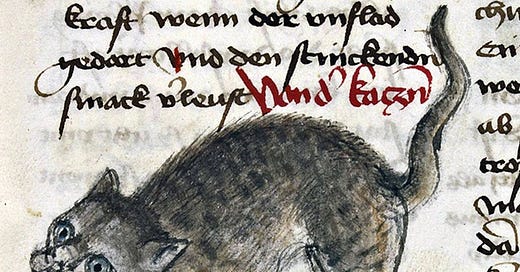 kraft wenn der vnflad
gedort vnd den stinckendn
smack v̉leust Von d̉ katzn̄
chu
En
we
ab
tro
ma
da